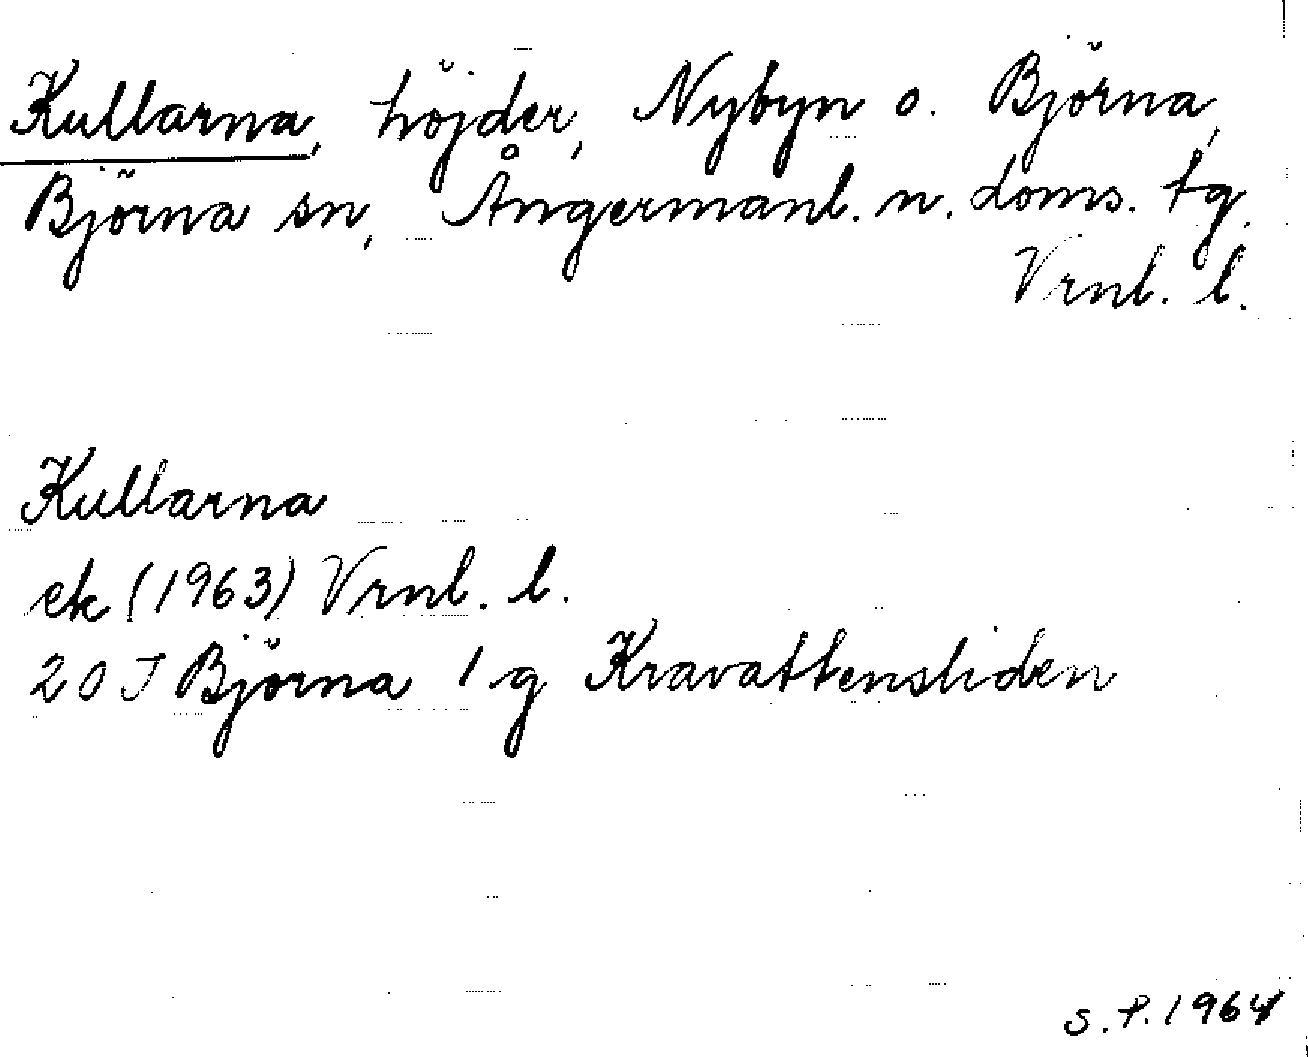 Kullarna, höjder, Nybyn o. Björna,
Björna sn, Ångermanl. n. doms. tg.
Vrnl. l.
Kullarna
ek (1963) Vrnl. l.
20 J Björna 1 g Kravattensliden
S.P. 1964